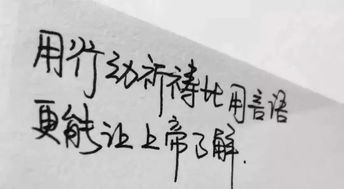 用行动祈祷比用言语
更能让上帝了解.